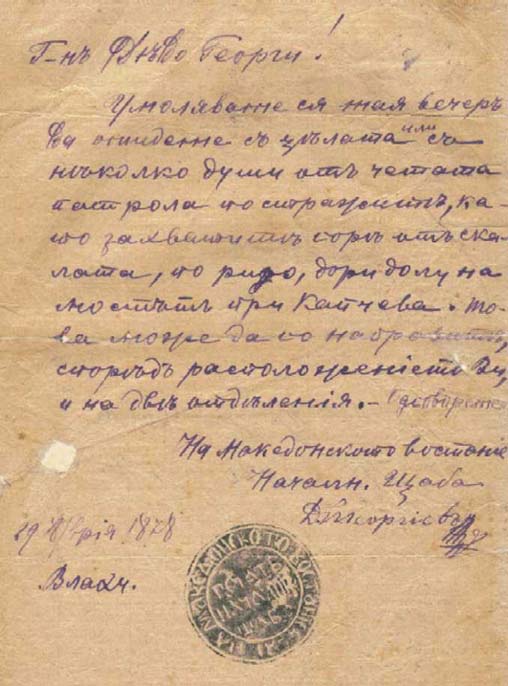 Г-нъ Дѣдо Георги!
Умоляваме ся тая вечеръ
да отидете съ цѣлата или съ
нѣколко души отъ четата
патрола по стражитѣ, ка-
то захватитѣ горѣ отъ ска-
лата, по ридо, дори долу на
мостътъ при Капчева. То-
ва може да го направитѣ,
спорѣдъ расположѣнието Ви,
и на двѣ отдѣлѣнія. –
На Македонското востание
Началн. Щаба
1878
Влахч.
НА МАКЕДОНСКОТО ВОСТАНИЕ